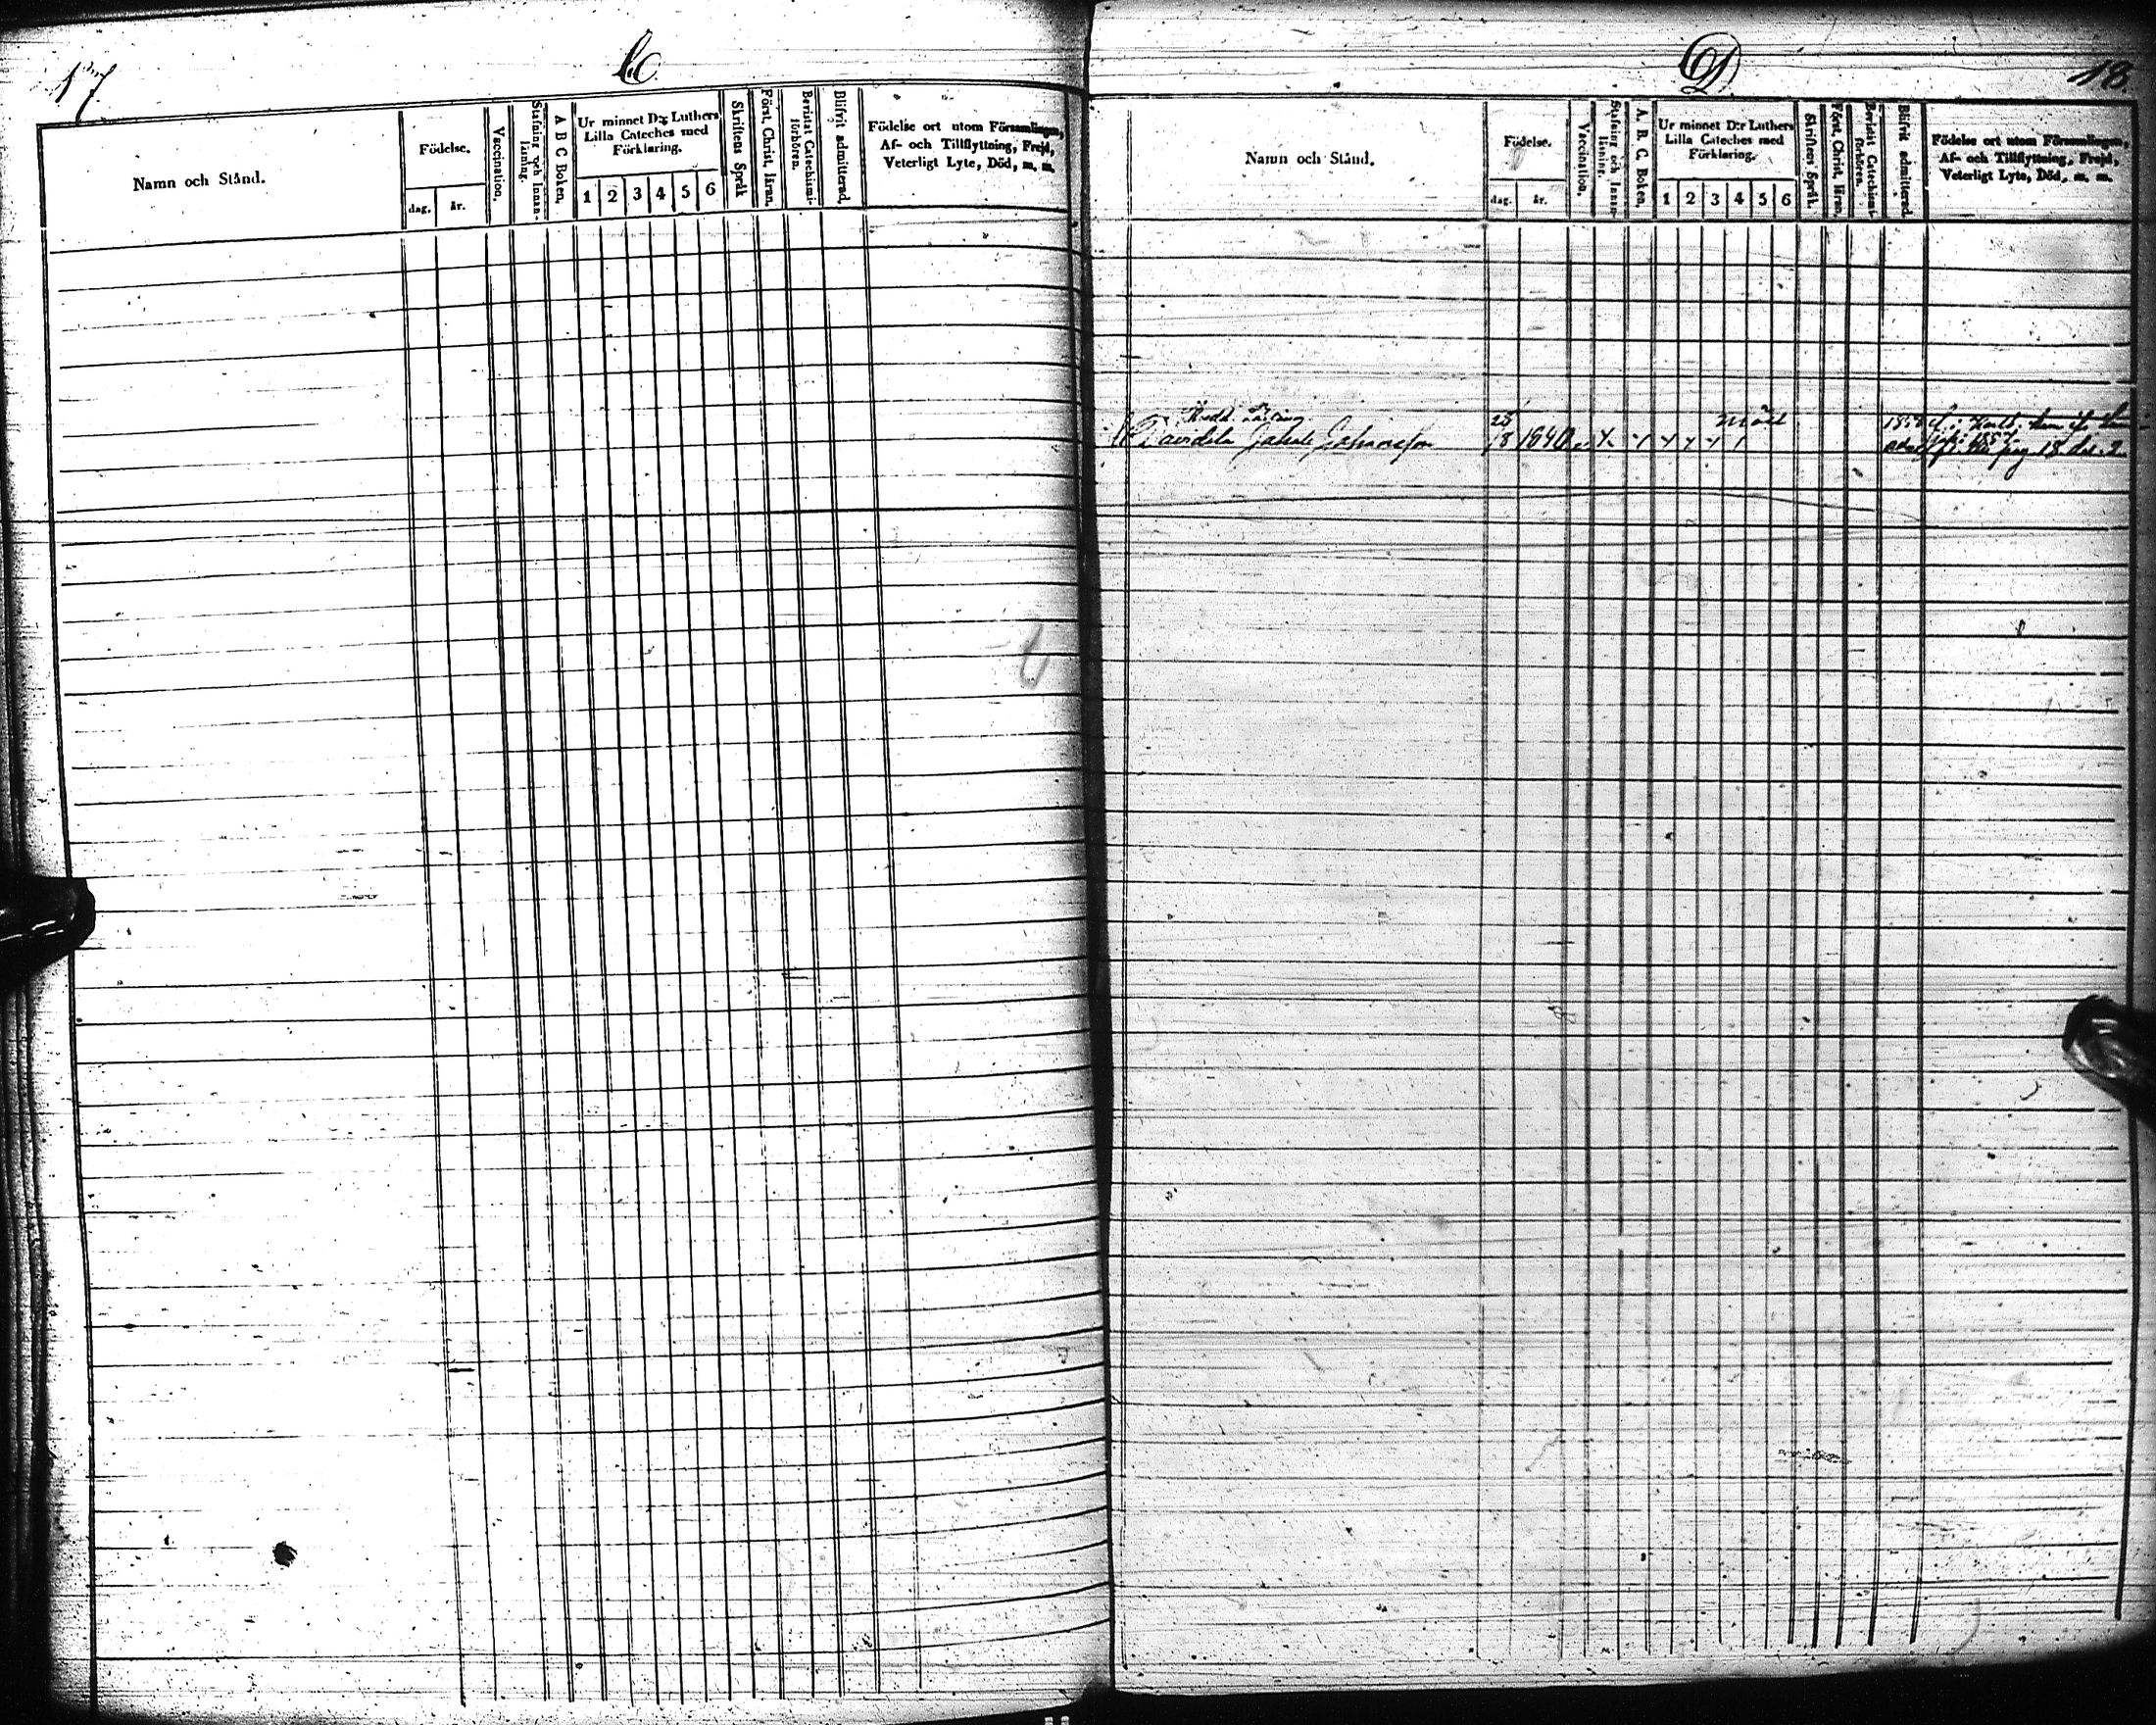 17
C
Namn och Stånd.
Födelse.
dag.
år.
Vaccination.
Stafning och Innan-
läsning.
A B C Boken.
Ur minnet D:r Luthers
Lilla Cateches med
Förklaring.
1 2 3 4 5 6
Skriftens Språk
Först. Christ. läran.
Bevistat Catechismi-
förhören.
Blifvit admitterad.
Födelse ort utom Församlingen,
Af- och Tillflyttning, Frejd,
Veterligt Lyte, Död, m. m.
D
18
Namn och Stånd.
Födelse.
dag.
år.
Vaccination.
Stafning och Innan-
läsning.
A. B. C. Boken.
Ur minnet D:r Luthers
Lilla Cateches med
Förklaring.
1 2 3 4 5 6
Skriftens Språk.
Först. Christ. läran.
Bevistat Catechismi-
förhören.
Blifvit admitterad.
Födelse ort utom Församlingen,
Af- och Tillflyttning, Frejd,
Veterligt Lyte, Död, m. m.
Johansson 18 1840
pag 18